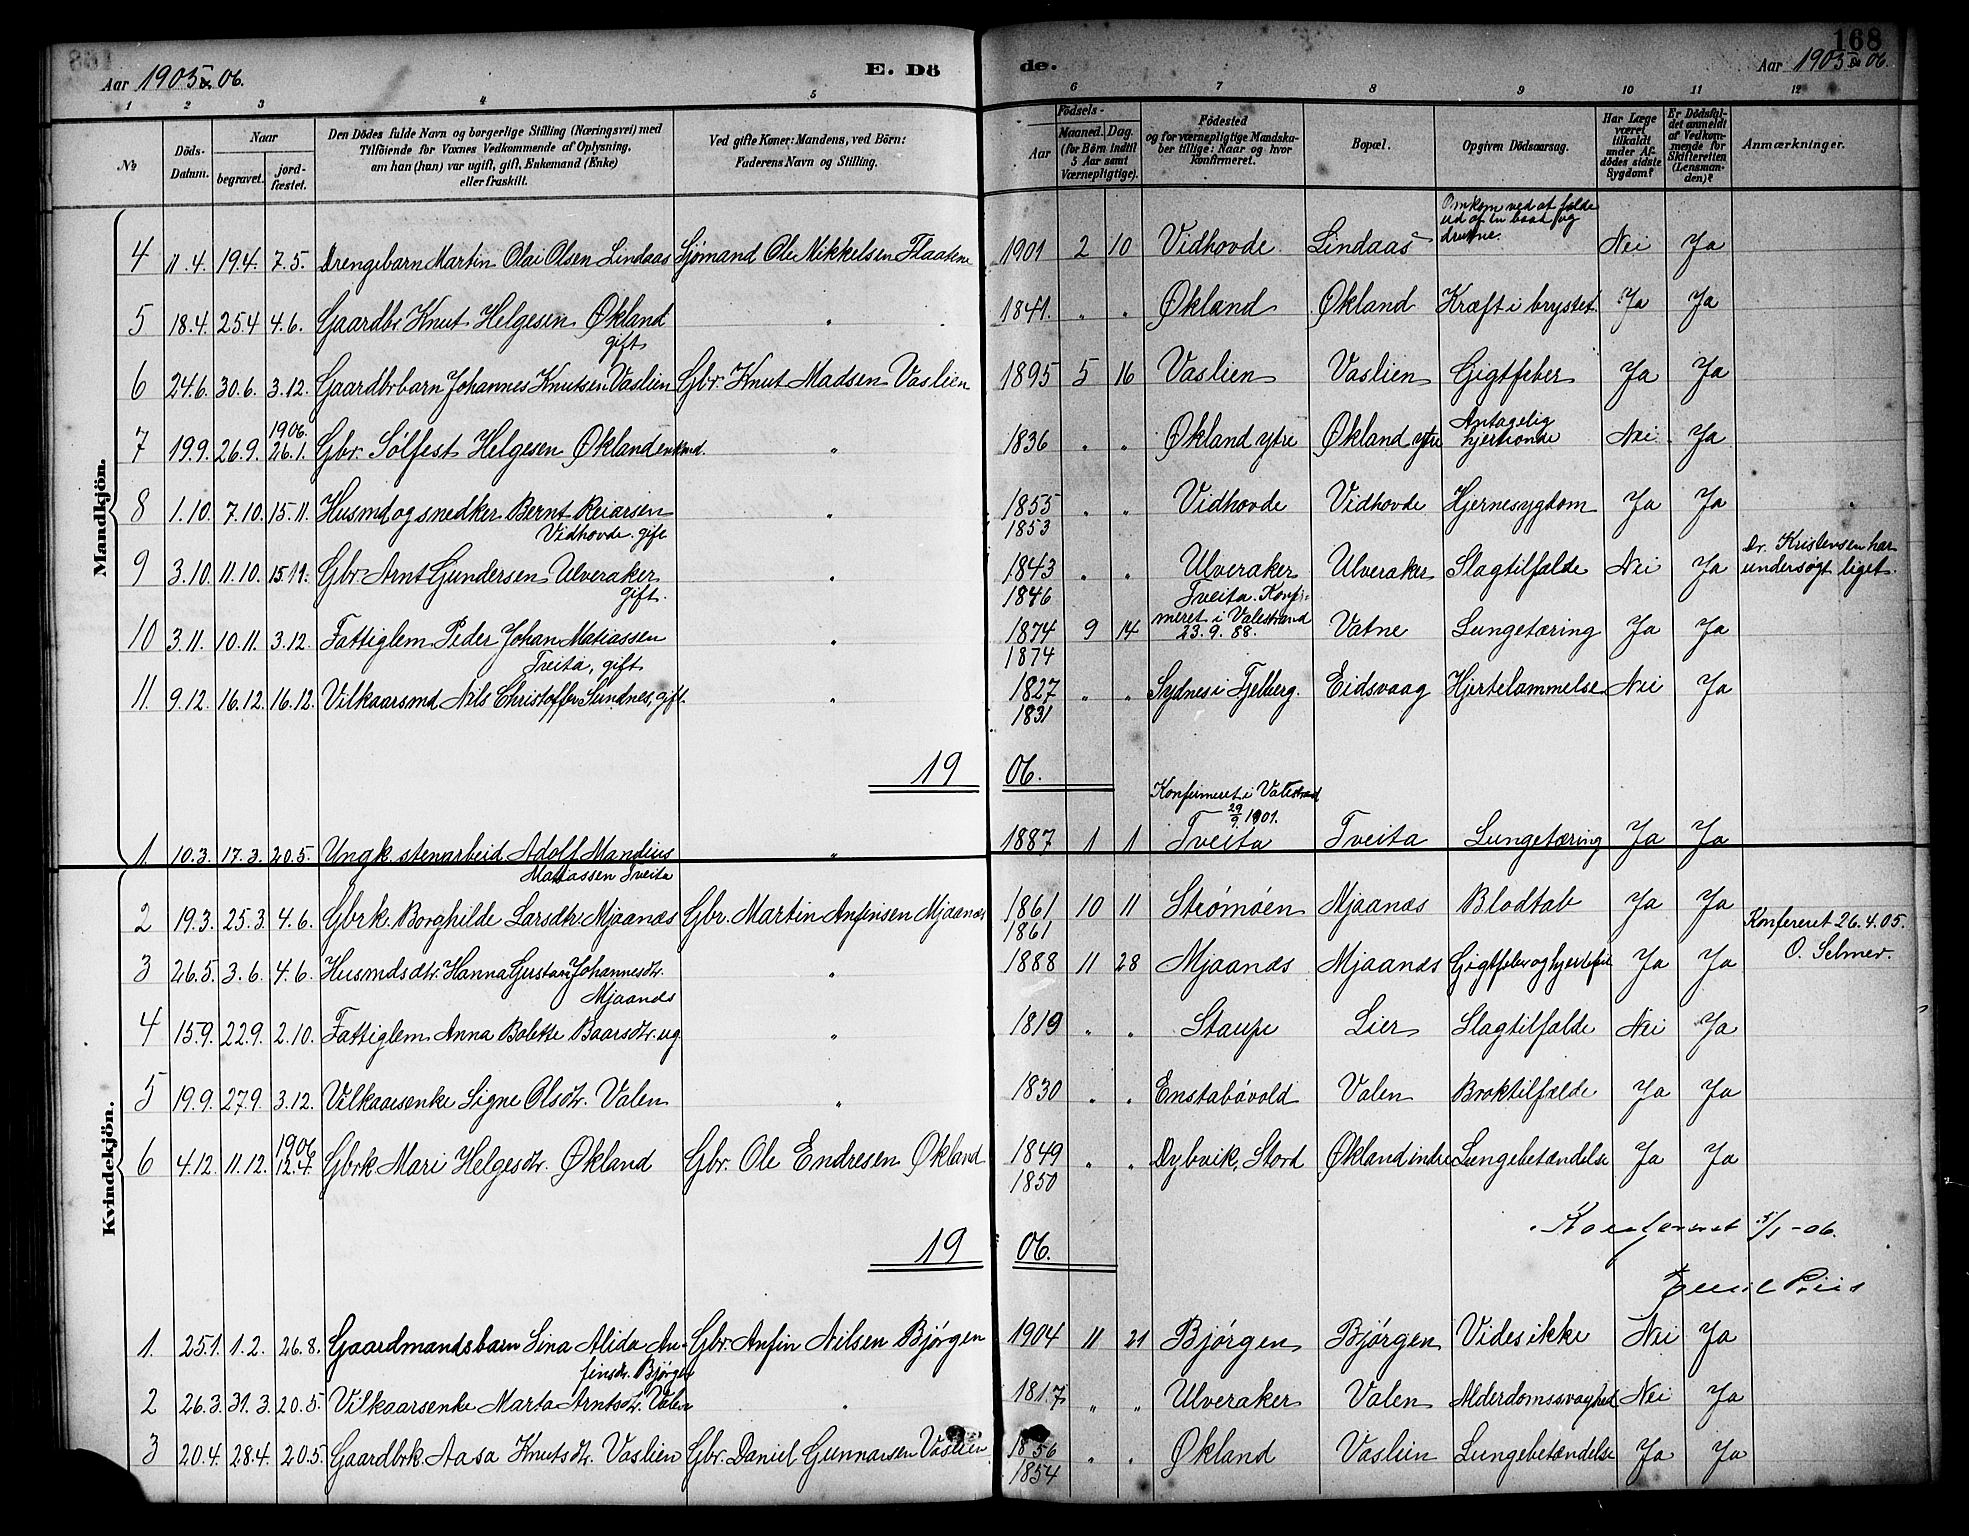 Aar 1905 & 06.
E. Dö
de.
168
Aar 1905 & 06.
1 2 3 4 5 6 7 8 9 10 11 12
No
Döds-Datum.
Naar
begravet. jordfæstet.
Den Dödes fulde Navn og borgerlige Stilling (Næringsvei) med
Tilföiende for Voxnes Vedkommende af Oplysning,
om han (hun) var ugift, gift, Enkemand (Enke)
eller fraskilt.
Ved gifte Koner: Mandens, ved Börn:
Faderens Navn og Stilling.
Födsels-
Aar
Maaned. Dag.
(for Börn indtil
5 Aar samt
Værnepligtige).
Födested
og for værnepligtige Mandskaber tillige: Naar og hvor
Konfirmeret.
Bopæl.
Opgiven Dödsaarsag.
Har Læge
været
tilkaldt
under Afdödes sidste
Sygdom?
Er Dödsfaldet anmeldt
af Vedkommende for
Skifteretten
(Lensmanden)?
Anmærkninger.
Mandkjön.
4 11.4. 19.4. 7.5. Drengebarn Martin Olai Olsen Lindaas Sjömand Ole Mikkelsen Flaatene 1901 2 10 Vidhovde Lindaas Omkom ved at falde ud af en baad og drukne. Nei Ja
5 18.4. 25.4 4.6. Gaardbr. Knut Helgesen Økland gift " 1841. " " Økland Økland Kræft i brystet. Ja Ja
6 24.6. 30.6. 3.12. Gaardbrbarn Johannes Knutsen Vaslien Gbr. Knut Madsen Vaslien 1895 5 16 Vaslien Vaslien Gigtfeber Ja Ja
7 19.9. 26.9. 1906. 26.1. Gbr. Sølfest Helgesen Økland enkmd. " 1836 " " Økland ytre Økland ytre Antagelig hjerteonde Nei Ja
8 1.10. 7.10. 15.11. Husmd og snedker Bernt Reiarsen Vidhovde. gift " 1855 1853 " " Vidhovde Vidhovde Hjernesygdom Ja Ja
9 3.10. 11.10. 15.11. Gbr. Arnt Gundersen Ulveraker gift. " 1843 1846 " " Ulveraker Ulveraker Slagtilfalde Nei Ja Dr. Kristensen har undersøgt liget.
10 3.11. 10.11. 3.12. Fattiglem Peder Johan Matiassen Tveita, gift " 1874 1874 9 14 Tveita. Konfirmeret i Valestrand 23.9.88. Vatne Lungetæring Ja Ja
11 9.12. 16.12. 16.12. Vilkaarsmd Nils Christoffer Sundnes, gift. " 1827 1831 " " Sydnes i Fjelberg. Eidsvaag Hjertelammelse Nei Ja
19 06.
1. 10.3. 17.3. 20.5. Ungk. stenarbeid Adolf Mandius Matiassen Tveita " 1887 1 1 Konfirmeret i Valestrand 29/9 1901. Tveita Tveita Lungetæring Ja Ja
Kvindekjön.
2 19.3. 25.3. 4.6. Gbrk. Borghilde Larsdtr. Mjaanes Gbr. Martin Anfinsen Mjaanes 1861 1861 10 11 Strømøen Mjaanes Blodtab Ja Ja Konfereret 26.4.05. O. Selmer.
3 26.5. 3.6. 4.6. Husmdsdtr. Hanna Gustava Johannesdtr. Mjaanes " 1888 11 28 Mjaanes Mjaanes Gigtfeber og hjertefeil Ja Ja
4 15.9. 22.9. 2.10. Fattiglem Anna Bolette Baarsdtr. ug. " 1819 " " Staupe Lier Slagtilfalde Nei Ja
5 19.9. 27.9. 3.12. Vilkaarsenke Signe Olsdtr. Valen " 1830 " " Enstabövold Valen Broktilfælde Ja Ja
6 4.12. 11.12. 1906 12.4. Gbrk Mari Helgesdtr. Økland Gbr. Ole Endresen Økland 1849 1850 " " Dybvik, Stord Økland indre Lungebetændelse Ja Ja
Konfereret 5/1-06.
19 06.
Emil Riis
1. 25.1. 1.2. 26.8. Gaardmandsbarn Lina Alida Anfinsdtr. Bjørgen Gbr. Anfin Nilsen Bjørgen 1904 11 21 Bjørgen Bjørgen Vides ikke Nei Ja
2 26.3. 31.3. 20.5. Vilkaarsenke Marta Arntsdtr. Valen " 1817 " " Ulveraker Valen Alderdomssvaghed Nei Ja
3 20.4. 28.4. 20.5. Gaardbrk. Aasa Knutsdtr. Vaslien Gbr. Daniel Gunnarsen Vaslien 1856 1854 " " Økland Vaslien Lungebetændelse Ja Ja